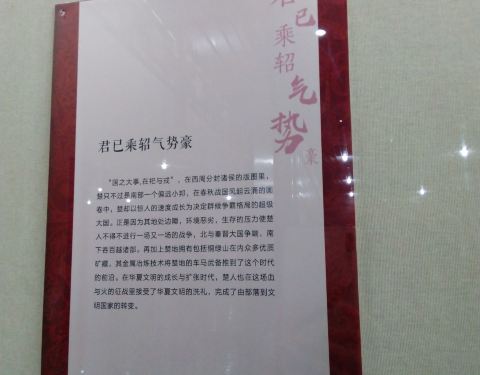 君已乘轺气势豪
君已乘轺气势豪
“国之大事,在祀与戎”，在西周分封诸侯的版图里，
楚只不过是南部一个偏远小邦，在春秋战国风起云涌的画
卷中，楚却以惊人的速度成长为决定群候争霸格局的超级
大国。正是因为其地处边陲，环境恶劣，生存的压力使楚
人不得不进行一场又一场的战争，北与秦晋大国争雄、南
下吞百越诸部，再加上楚地拥有包括铜绿山在内众多优质
矿藏，其金属冶炼技术将楚地的车马武备推到了这个时代
的前沿。在华夏文明的成长与扩张时代，楚人也在这场血
与火的征战里接受了华夏文明的洗礼，完成了由部落到文
明国家的转变。